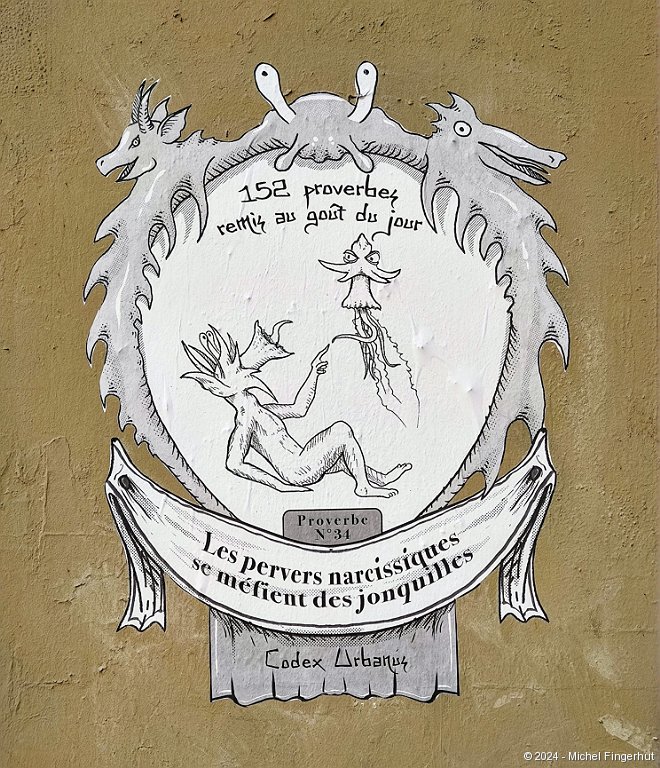 152 proverbes
remis au goût du jour
Proverbe
N°34
Les pervers narcissiques
se méfient des jonquilles
Codex Urbanus
© 2024 - Michel Fingerhut